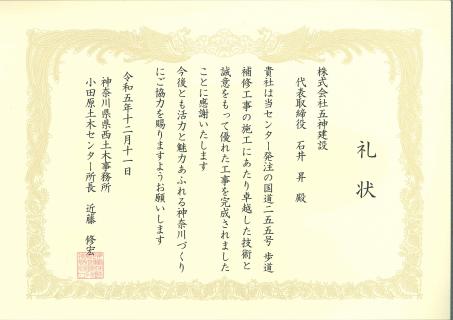 礼状
株式会社五神建設
代表取締役 石井 昇 殿
貴社は当センター発注の国道二五五号 歩道
補修工事の施工にあたり卓越した技術と
誠意をもって優れた工事を完成されました
ことに感謝いたします
今後とも活力と魅力あふれる神奈川づくり
にご協力を賜りますようお願いします
令和五年十二月十一日
神奈川県県西土木事務所
小田原土木センター所長 近藤 修宏